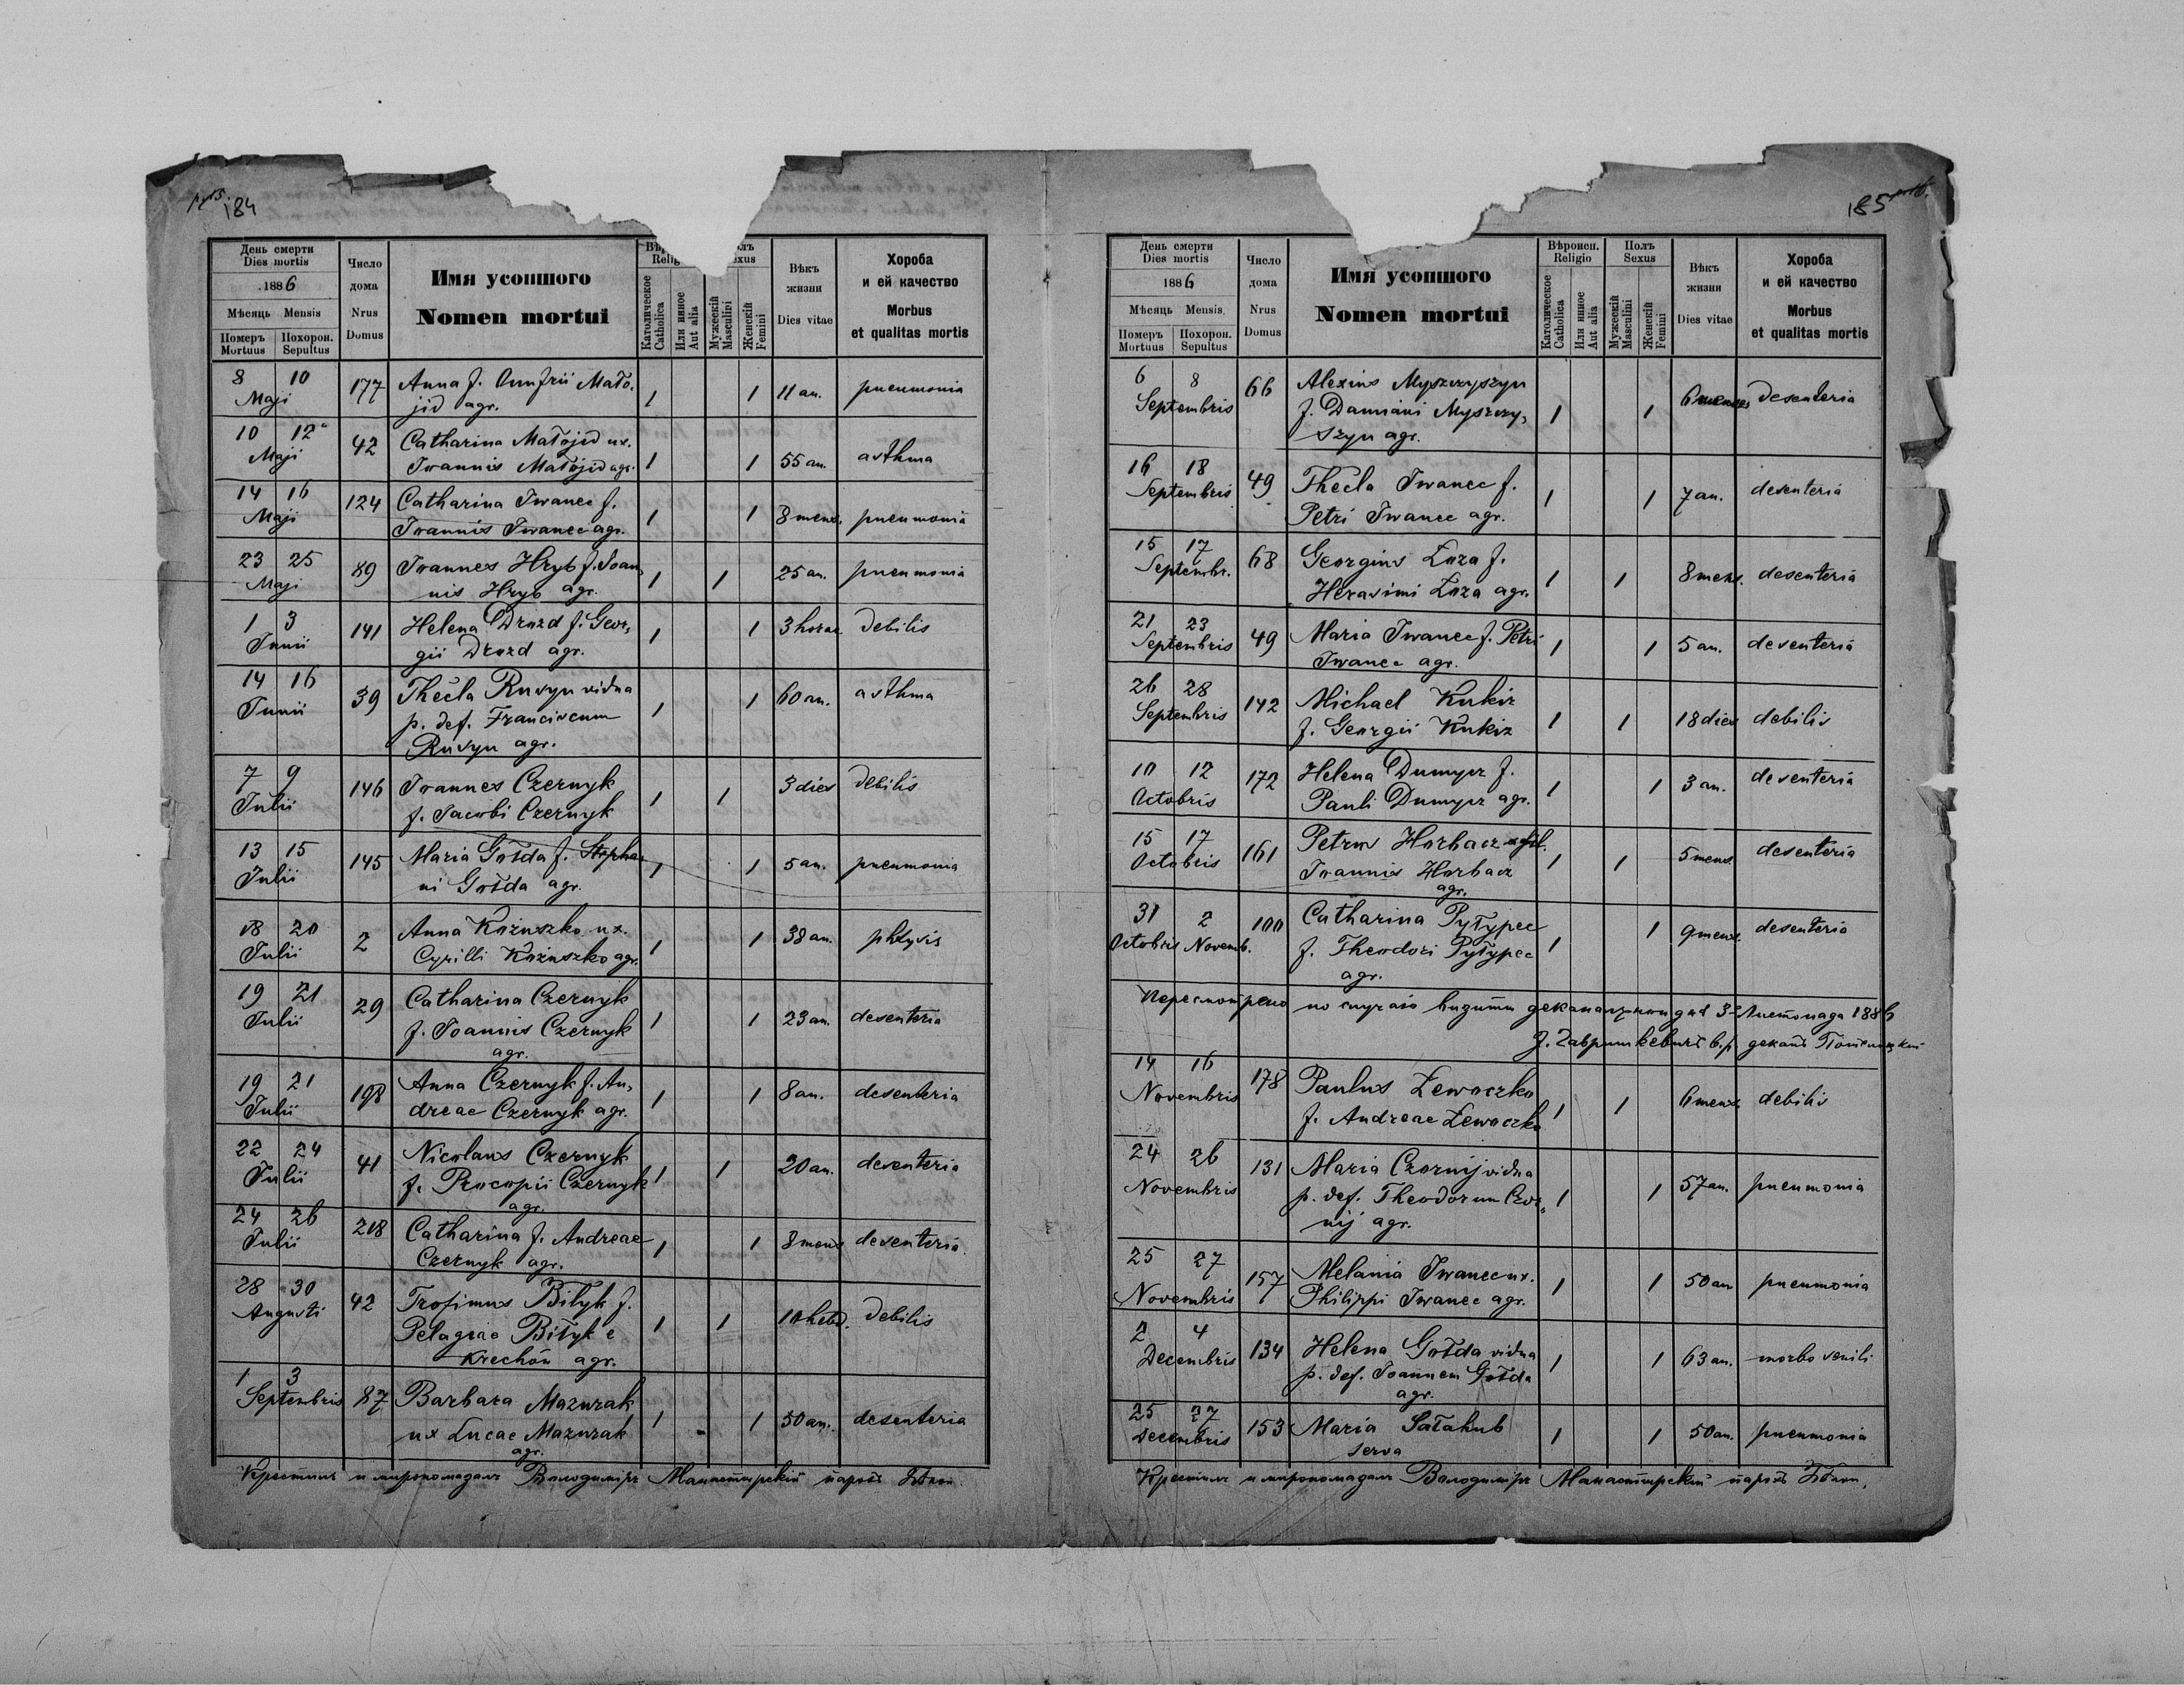 184
День смерти
Dies mortis
1886
Мѣсяць Mensis
Померъ Похорон.
Mortuus Sepultus
Число
дома
Nrus
Domus
Имя усопшого
Nomen mortui
Католическое
Catholica
Или инное
Aut alia
Мужескій
Masculini
Женскій
Femini
Вѣкъ
жизни
Dies vitae
Хороба
и ей качество
Morbus
et qualitas mortis
8 10 177 Anna f. Onufrii Mało-
Maji jid agr. 1 1 11 an. pneumonia
10 12 42 Catharina Małojid ux.
Maji Ioannis Małojid agr. 1 1 55 an. asthma
14 16 124 Catharina Iwanec f.
Maji Ioannis Iwanec agr. 1 1 8 mens. pneumonia
23 25 89 Ioannes Hryb f. Ioan-
Maji nis Hryb agr. 1 1 25 an. pneumonia
1 3 141 Helena Drozd f. Geor-
Junii gii Drozd agr. 1 1 3 horae debilis
14 16 39 Thecla Rusyn vidua
Junii p. def. Franciscum
Rusyn agr. 1 1 60 an. asthma
7 9 146 Ioannes Czernyk
Julii f. Jacobi Czernyk 1 1 3 dies debilis
13 15 145 Maria Gołda f. Stepha-
Julii ni Gołda agr. 1 1 5 an. pneumonia
18 20 2 Anna Kożuszko ux.
Julii Cyrilli Kożuszko agr. 1 1 38 an. phtysis
19 21 29 Catharina Czernyk
Julii f. Ioannis Czernyk
agr. 1 1 23 an. desenteria
19 21 198 Anna Czernyk f. An-
Julii dreae Czernyk agr. 1 1 8 an. desenteria
22 24 41 Nicolaus Czernyk
Julii f. Procopii Czernyk
agr. 1 1 20 an. desenteria
24 26 218 Catharina f. Andreae
Julii Czernyk agr. 1 1 8 mens desenteria
28 30 42 Trofimus Biłyk f.
Augusti Pelagiae Biłyk e
Krechów agr. 1 1 10 hebd. debilis
1 3 87 Barbara Mazurak
Septembris ux Lucae Mazurak
agr. 1 1 50 an. desenteria
Крестилъ и миропомазалъ Володимiръ Манастирскiй парохъ
185
День смерти
Dies mortis
1886
Мѣсяць Mensis
Померъ Похорон.
Mortuus Sepultus
Число
дома
Nrus
Domus
Имя усопшого
Nomen mortui
Вѣроисп.
Religio
Католическое
Catholica
Или инное
Aut alia
Полъ
Sexus
Мужескій
Masculini
Женскій
Femini
Вѣкъ
жизни
Dies vitae
Хороба
и ей качество
Morbus
et qualitas mortis
6 8 66 Alexius Myszczyszyn
Septembris f. Damiani Myszczy-
szyn agr. 1 1 6 menses desenteria
16 18 49 Thecla Iwanec f.
Septembris Petri Iwanec agr. 1 1 7 an. desenteria
15 17 68 Georgius Łoza f.
Septembr. Herasimi Łoza agr. 1 1 8 mens. desenteria
21 23 49 Maria Iwanec f. Petri
Septembris Iwanec agr. 1 1 5 an. desenteria
26 28 142 Michael Kukiz
Septembris f. Georgii Kukiz 1 1 18 dies debilis
10 12 172 Helena Dumycz f.
Octobris Pauli Dumycz agr. 1 1 3 an. desenteria
15 17 161 Petrus Horbacz fil.
Octobris Ioannis Horbacz
agr. 1 1 5 mens desenteria
31 2 100 Catharina Pyłypec
Octobris Novemb. f. Theodori Pyłypec
agr. 1 1 9 mens. desenteria
Пересмотрено по случаю визиты деканальной дня 3 Листопада 1886
14 16 178 Paulus Żewoczko
Novembris f. Andreae Żewoczko 1 1 6 mens. debilis
24 26 131 Maria Czornij vidua
Novembris p. def. Theodorum Czor-
nij agr. 1 1 57 an. pneumonia
25 27 157 Melania Iwanec ux.
Novembris Philippi Iwanec agr. 1 1 50 an pneumonia
2 4 134 Helena Gołda vidua
Decembris p. def. Ioannem Gołda
agr. 1 1 63 an. morbo senili
25 27 153 Maria Sałahub
Decembris serva 1 1 50 an. pneumonia
Крестилъ и миропомазалъ Володимiръ Манастирскiй парохъ